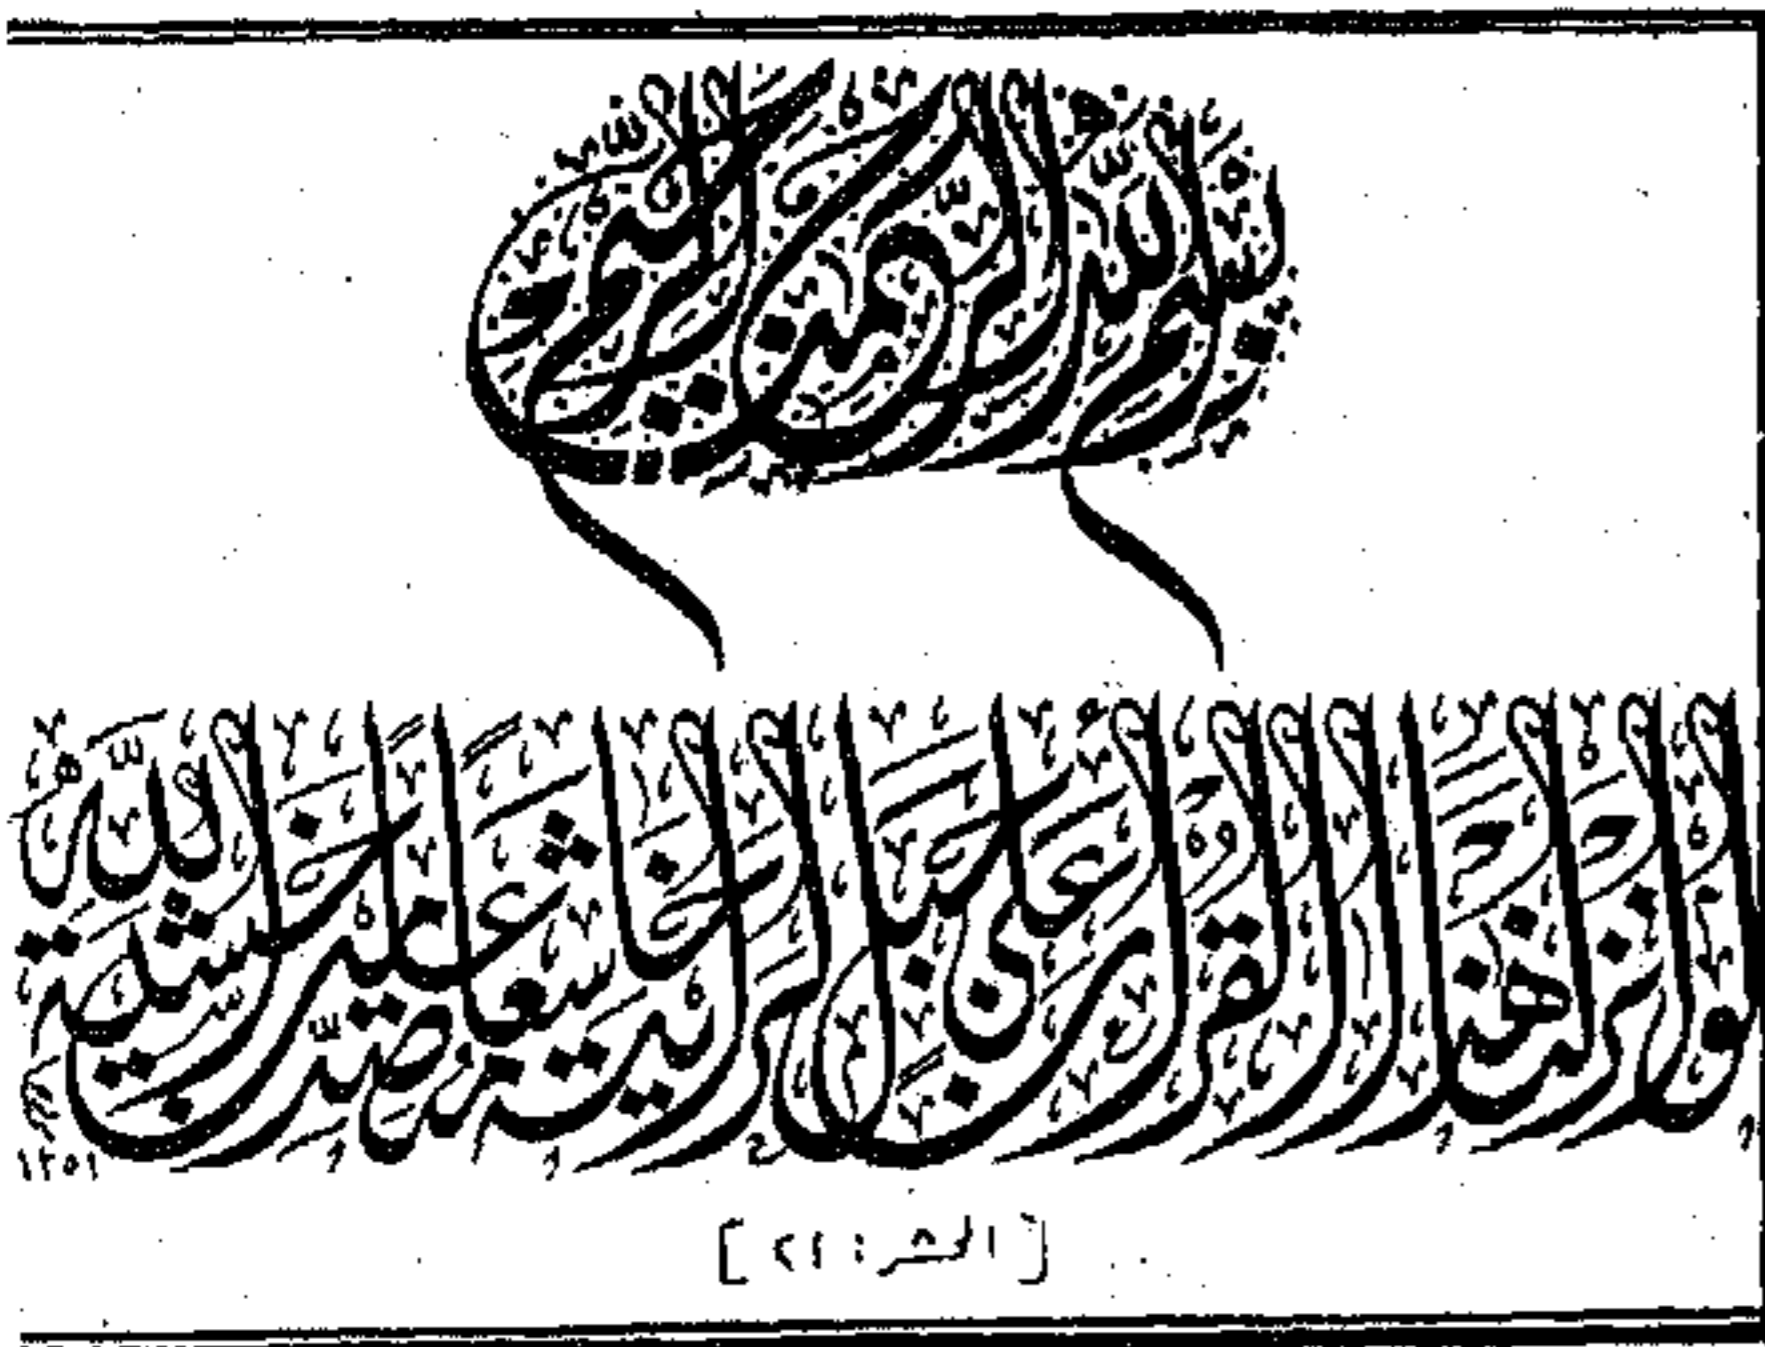 بسم الله الرحمن الرحيم
لو انزلنا هذا القرآن على جبل لرأيته خاشعا متصدعا من خشية الله
١٣٥١
[الحشر: ٢١]